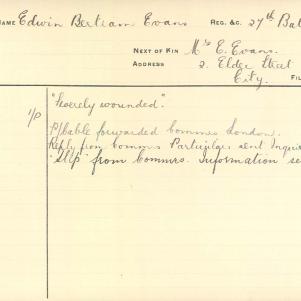 NAME Edwin Bertram Evans REG. &C. 27th Bat
NEXT OF KIN Mrs E. Evans.
ADDRESS 2. Elder Street
City. FIL
"Severely wounded".
1/P P/Cable forwarded Commrs London.
Reply from Commrs Particulars sent Inquirer
"Slip" from Commrs. Information se